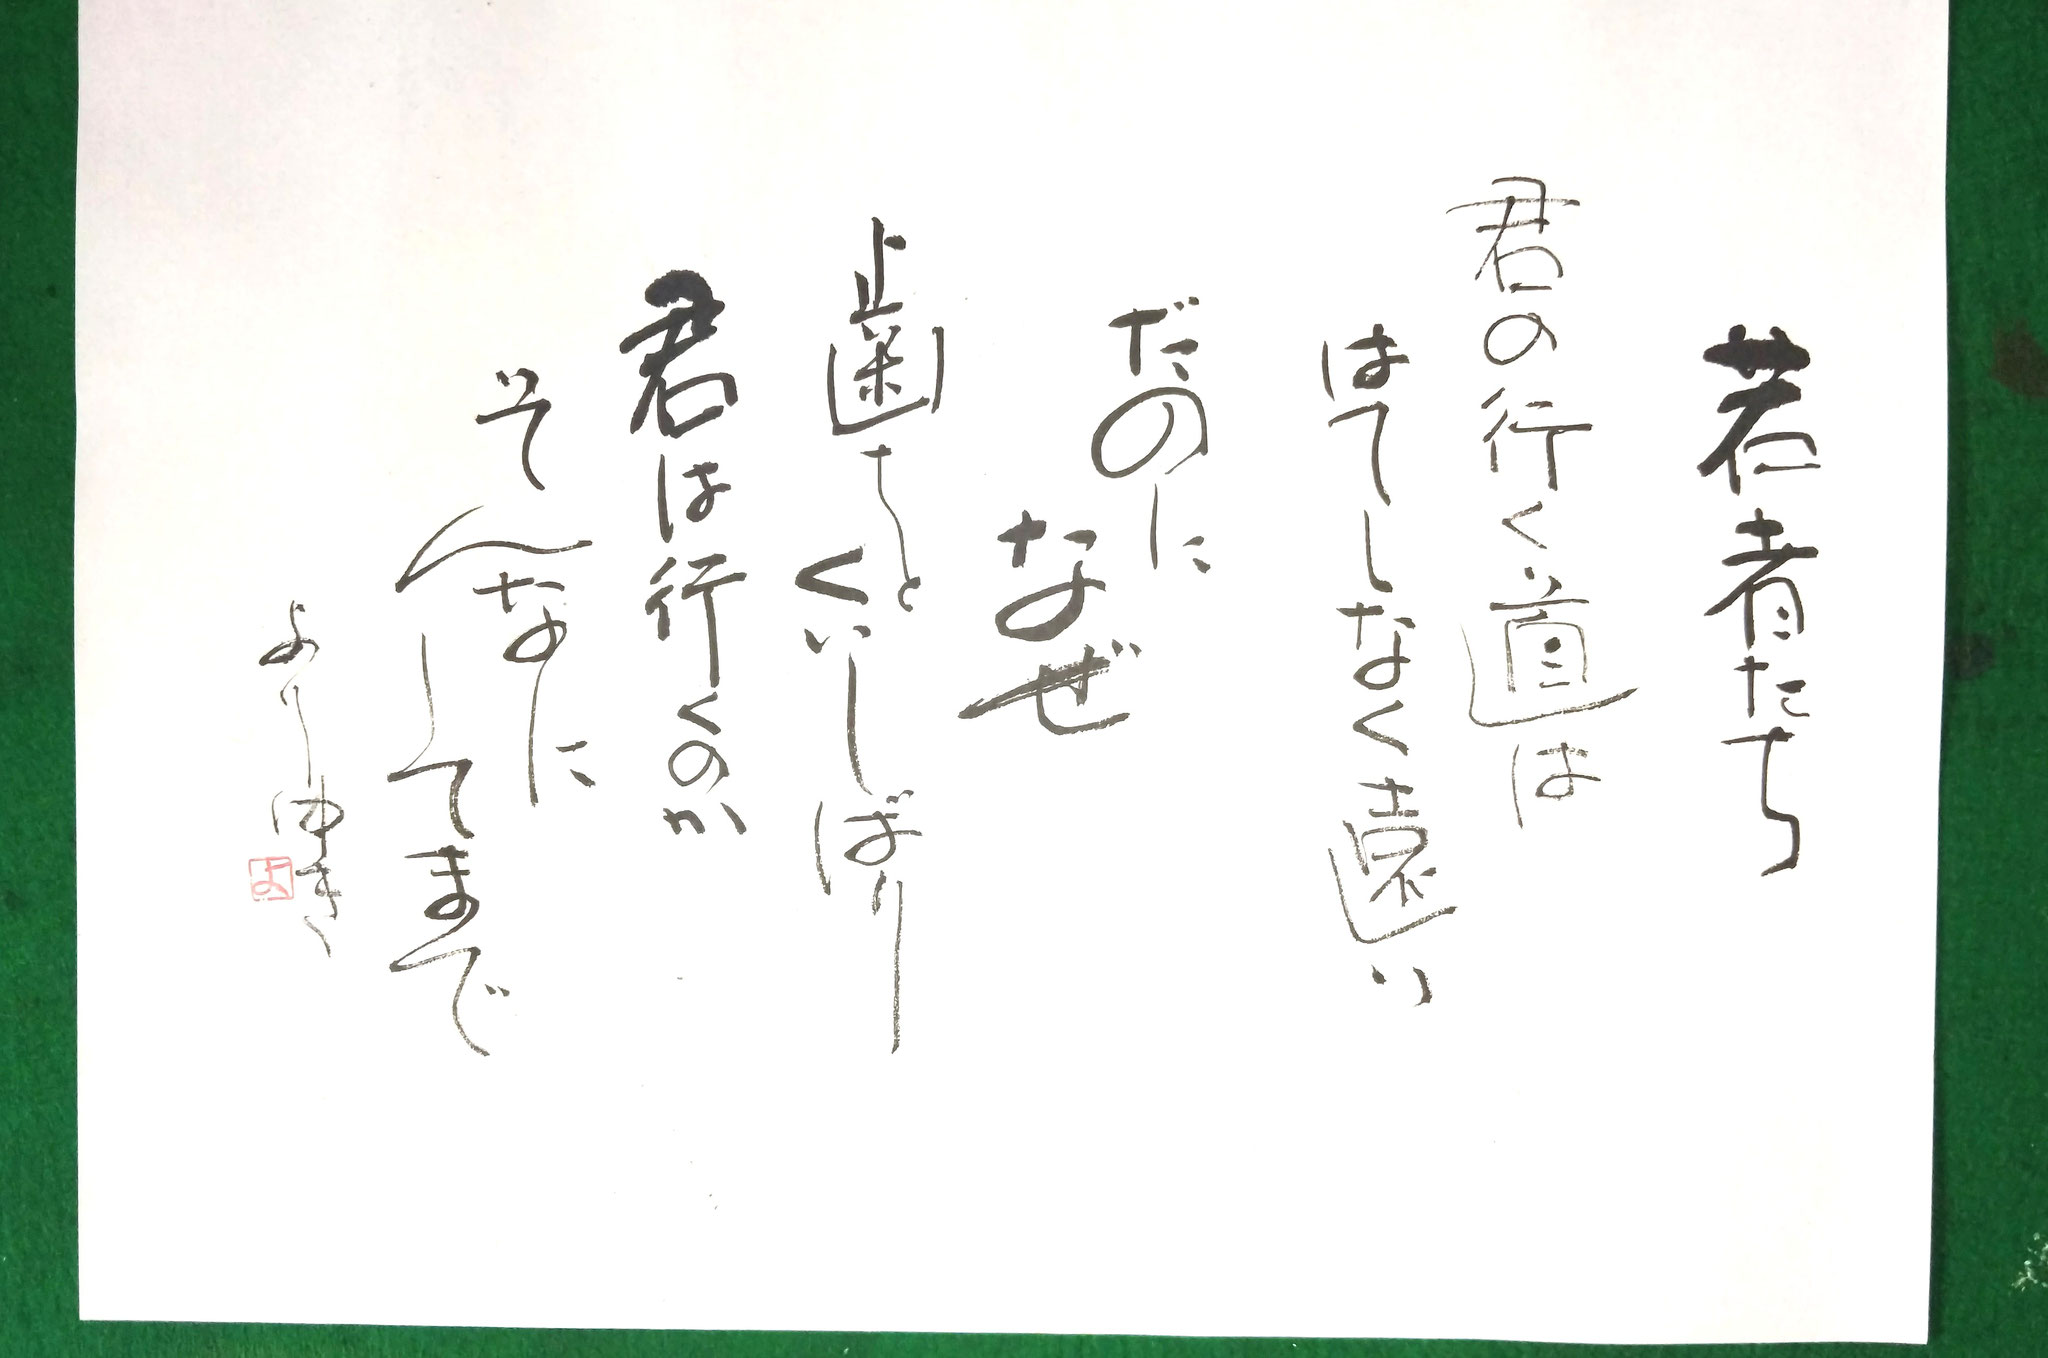 若者たち
君の行く道は
はてしなく遠い
だのに
なぜ
歯をくいしばり
君は行くのか
そんなに
してまで
よりゆき
よ